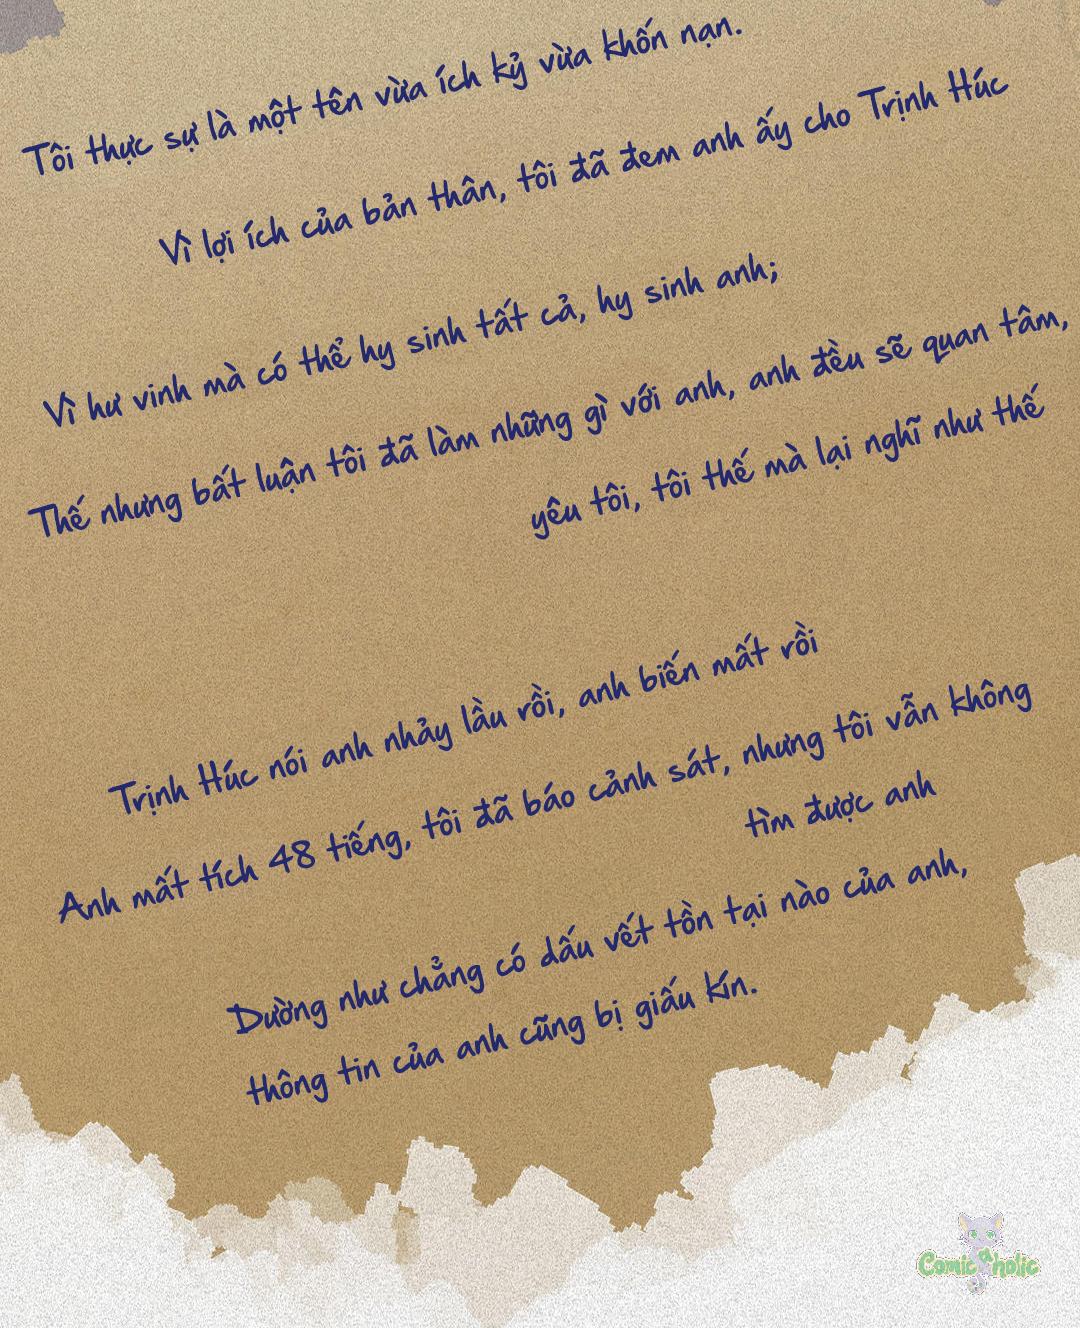 Tôi thực sự là một tên vừa ích kỷ vừa khốn nạn.
Vì lợi ích của bản thân, tôi đã đem anh ấy cho Trịnh Húc
Vì hư vinh mà có thể hy sinh tất cả, hy sinh anh;
Thế nhưng bất luận tôi đã làm những gì với anh, anh đều sẽ quan tâm,
yêu tôi, tôi thế mà lại nghĩ như thế
Trịnh Húc nói anh nhảy lầu rồi, anh biến mất rồi
Anh mất tích 48 tiếng, tôi đã báo cảnh sát, nhưng tôi vẫn không
tìm được anh
Dường như chẳng có dấu vết tồn tại nào của anh,
thông tin của anh cũng bị giấu kín.
Comicaholic